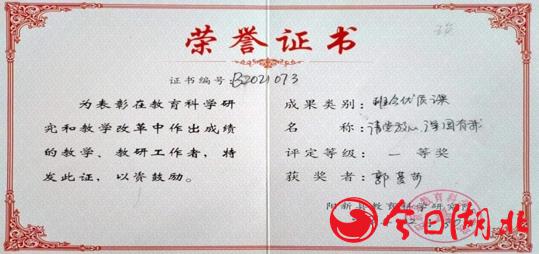 荣誉证书
证书编号：B2021073
为表彰在教育科学研
究和教学改革中作出成绩
的教学、教研工作者，特
发此证，以资鼓励。
成果类别：班会优质课
名称：请党放心，强国有我
评定等级：一等奖
获奖者：郭
阳新县教育科学研究院
今日湖北